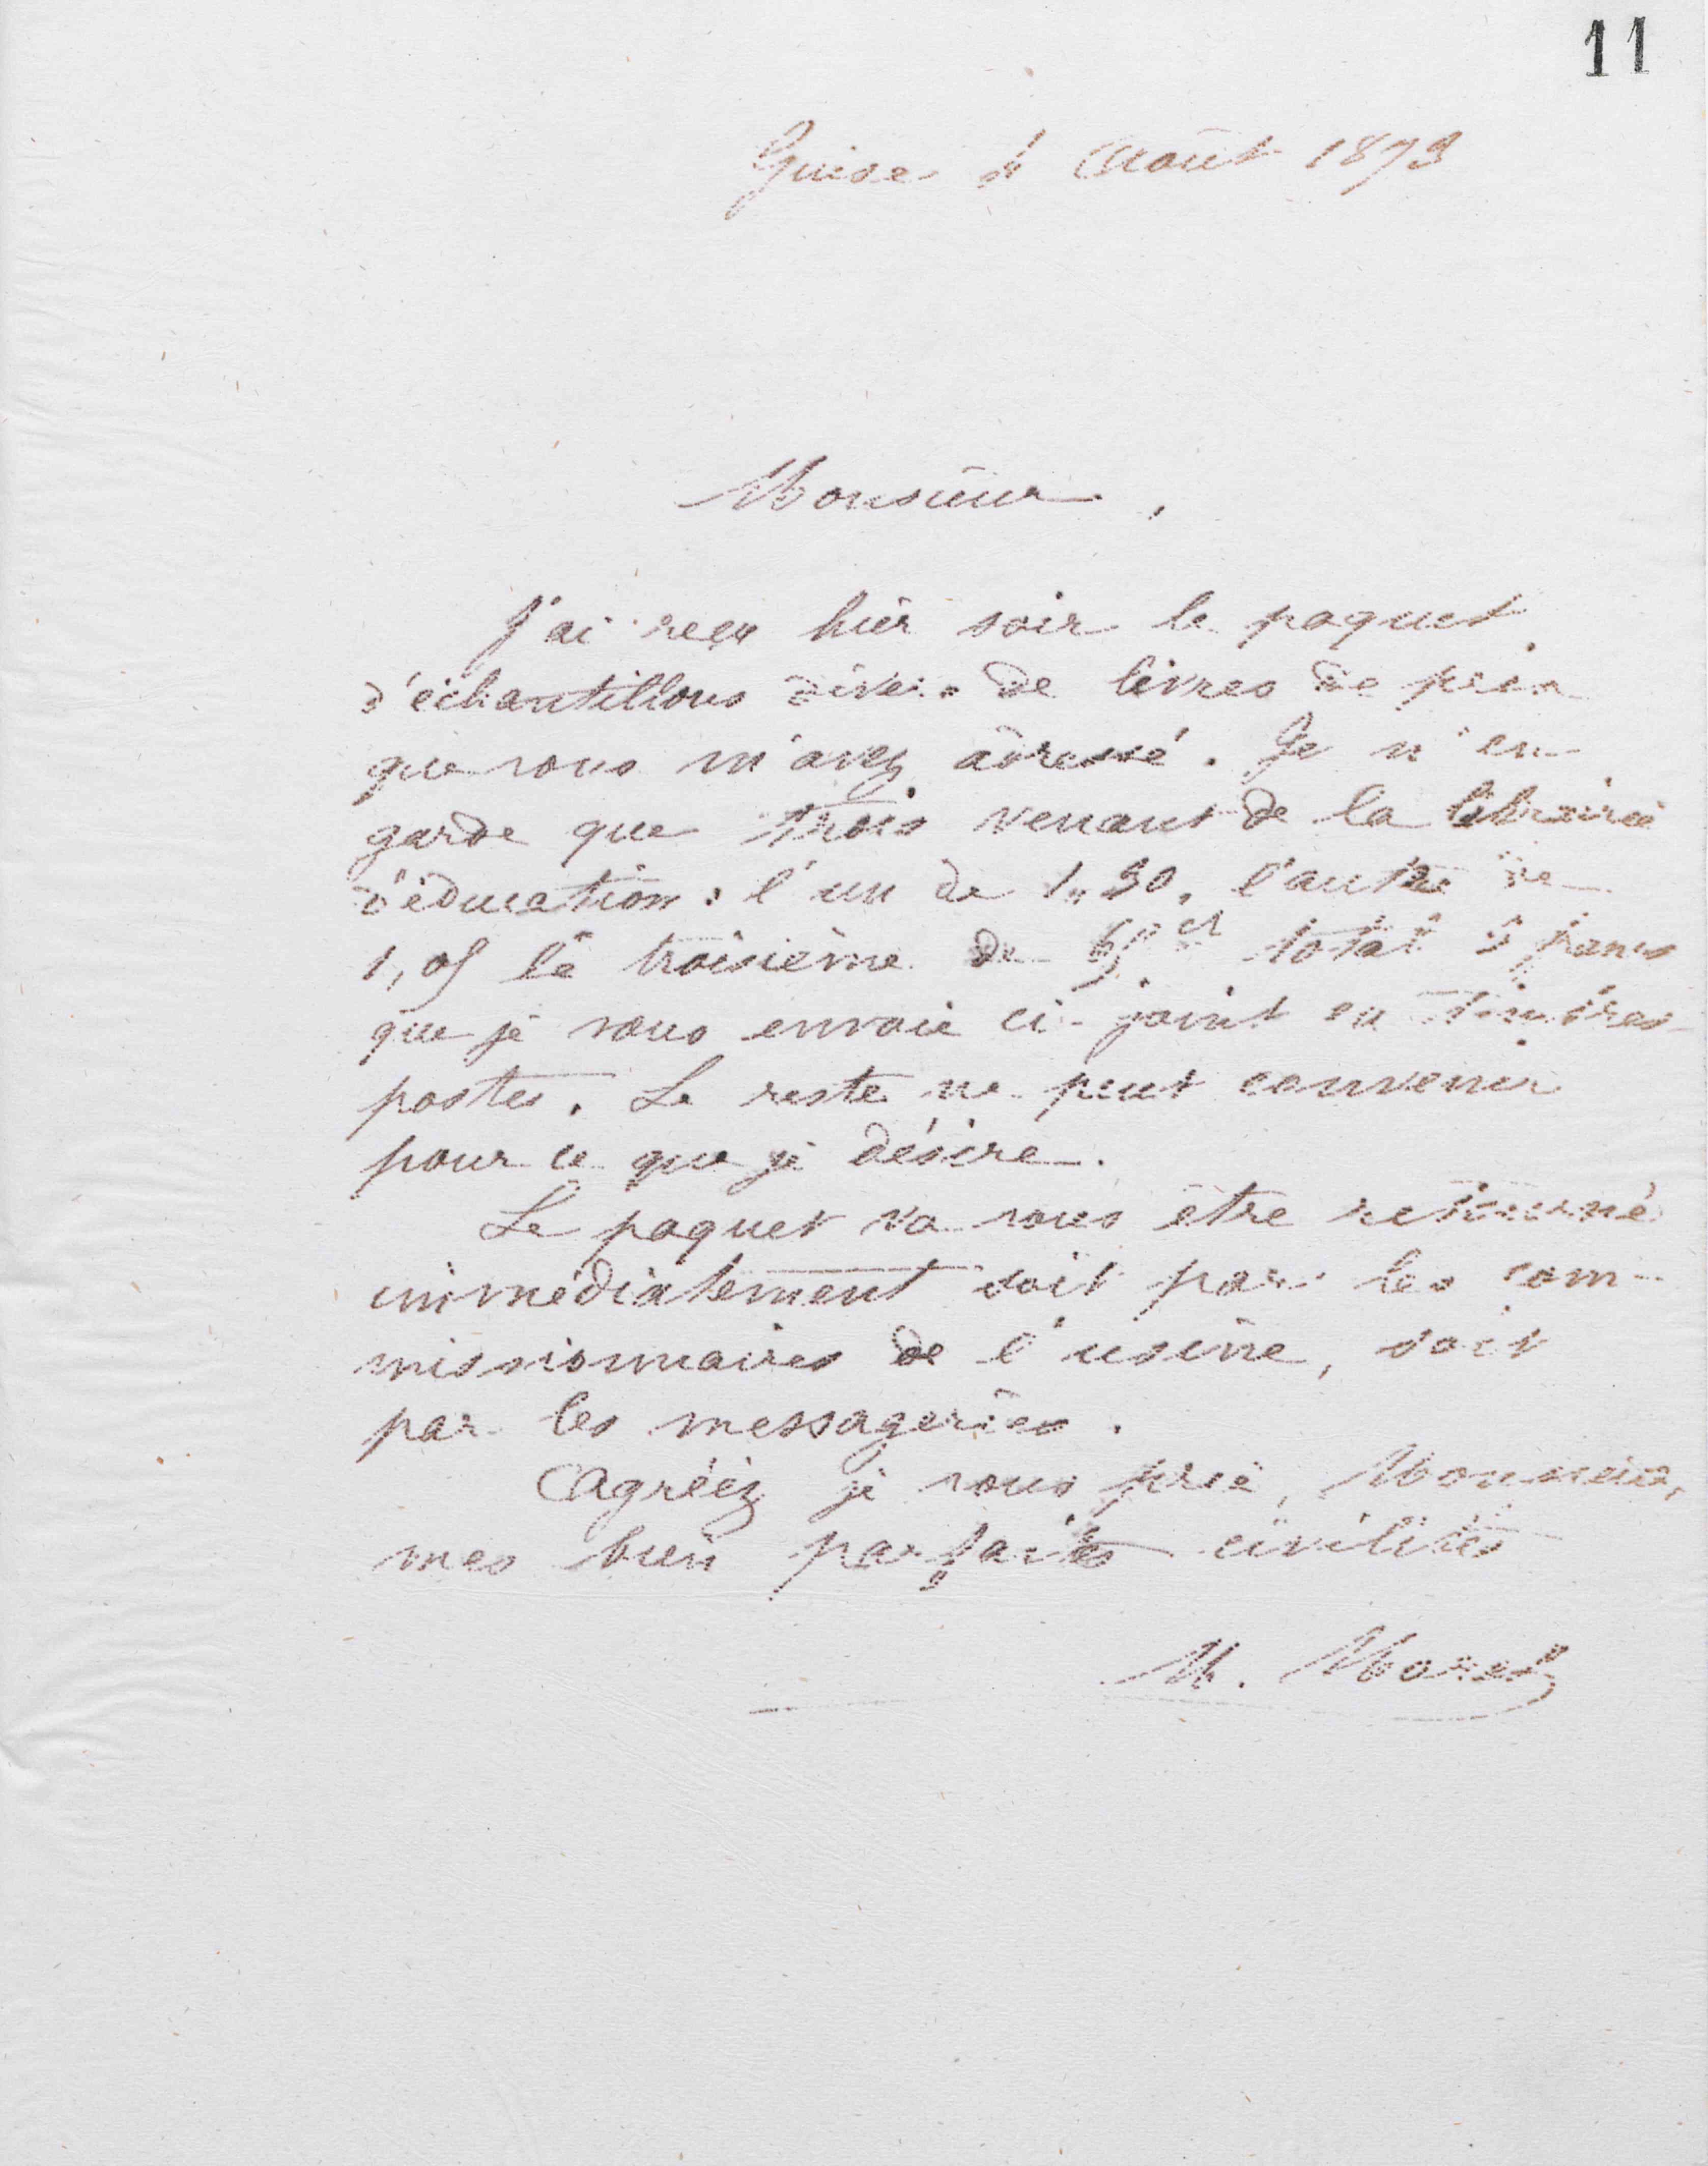 11
Guise 4 Août 1879
Monsieur,
J'ai reçu hier soir le paquet
d'échantillons divers de livres de prix
que vous m'avez adressé. Je n'en
garde que trois venant de la librairie
d'éducation : l'un de 1,30, l'autre de
1,05 le troisième de 65 ct total 3 francs
que je vous envoie ci-joint en timbres
postes. Le reste ne peut convenir
pour ce que je désire.
Le paquet va vous être retourné
immédiatement soit par les com-
missionnaires de l'usine, soit
par les messageries.
Agréez je vous prie, Monsieur,
mes bien parfaites civilités
M. Moret